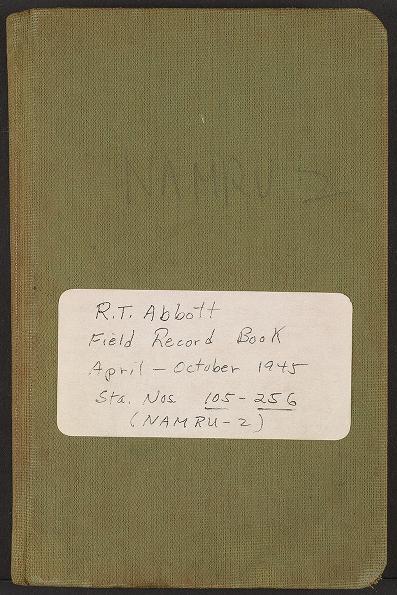 NAMRU 2
R.T. Abbott
Field Record Book
April - October 1945
Sta. Nos. 105 - 256
(NAMRU-2)